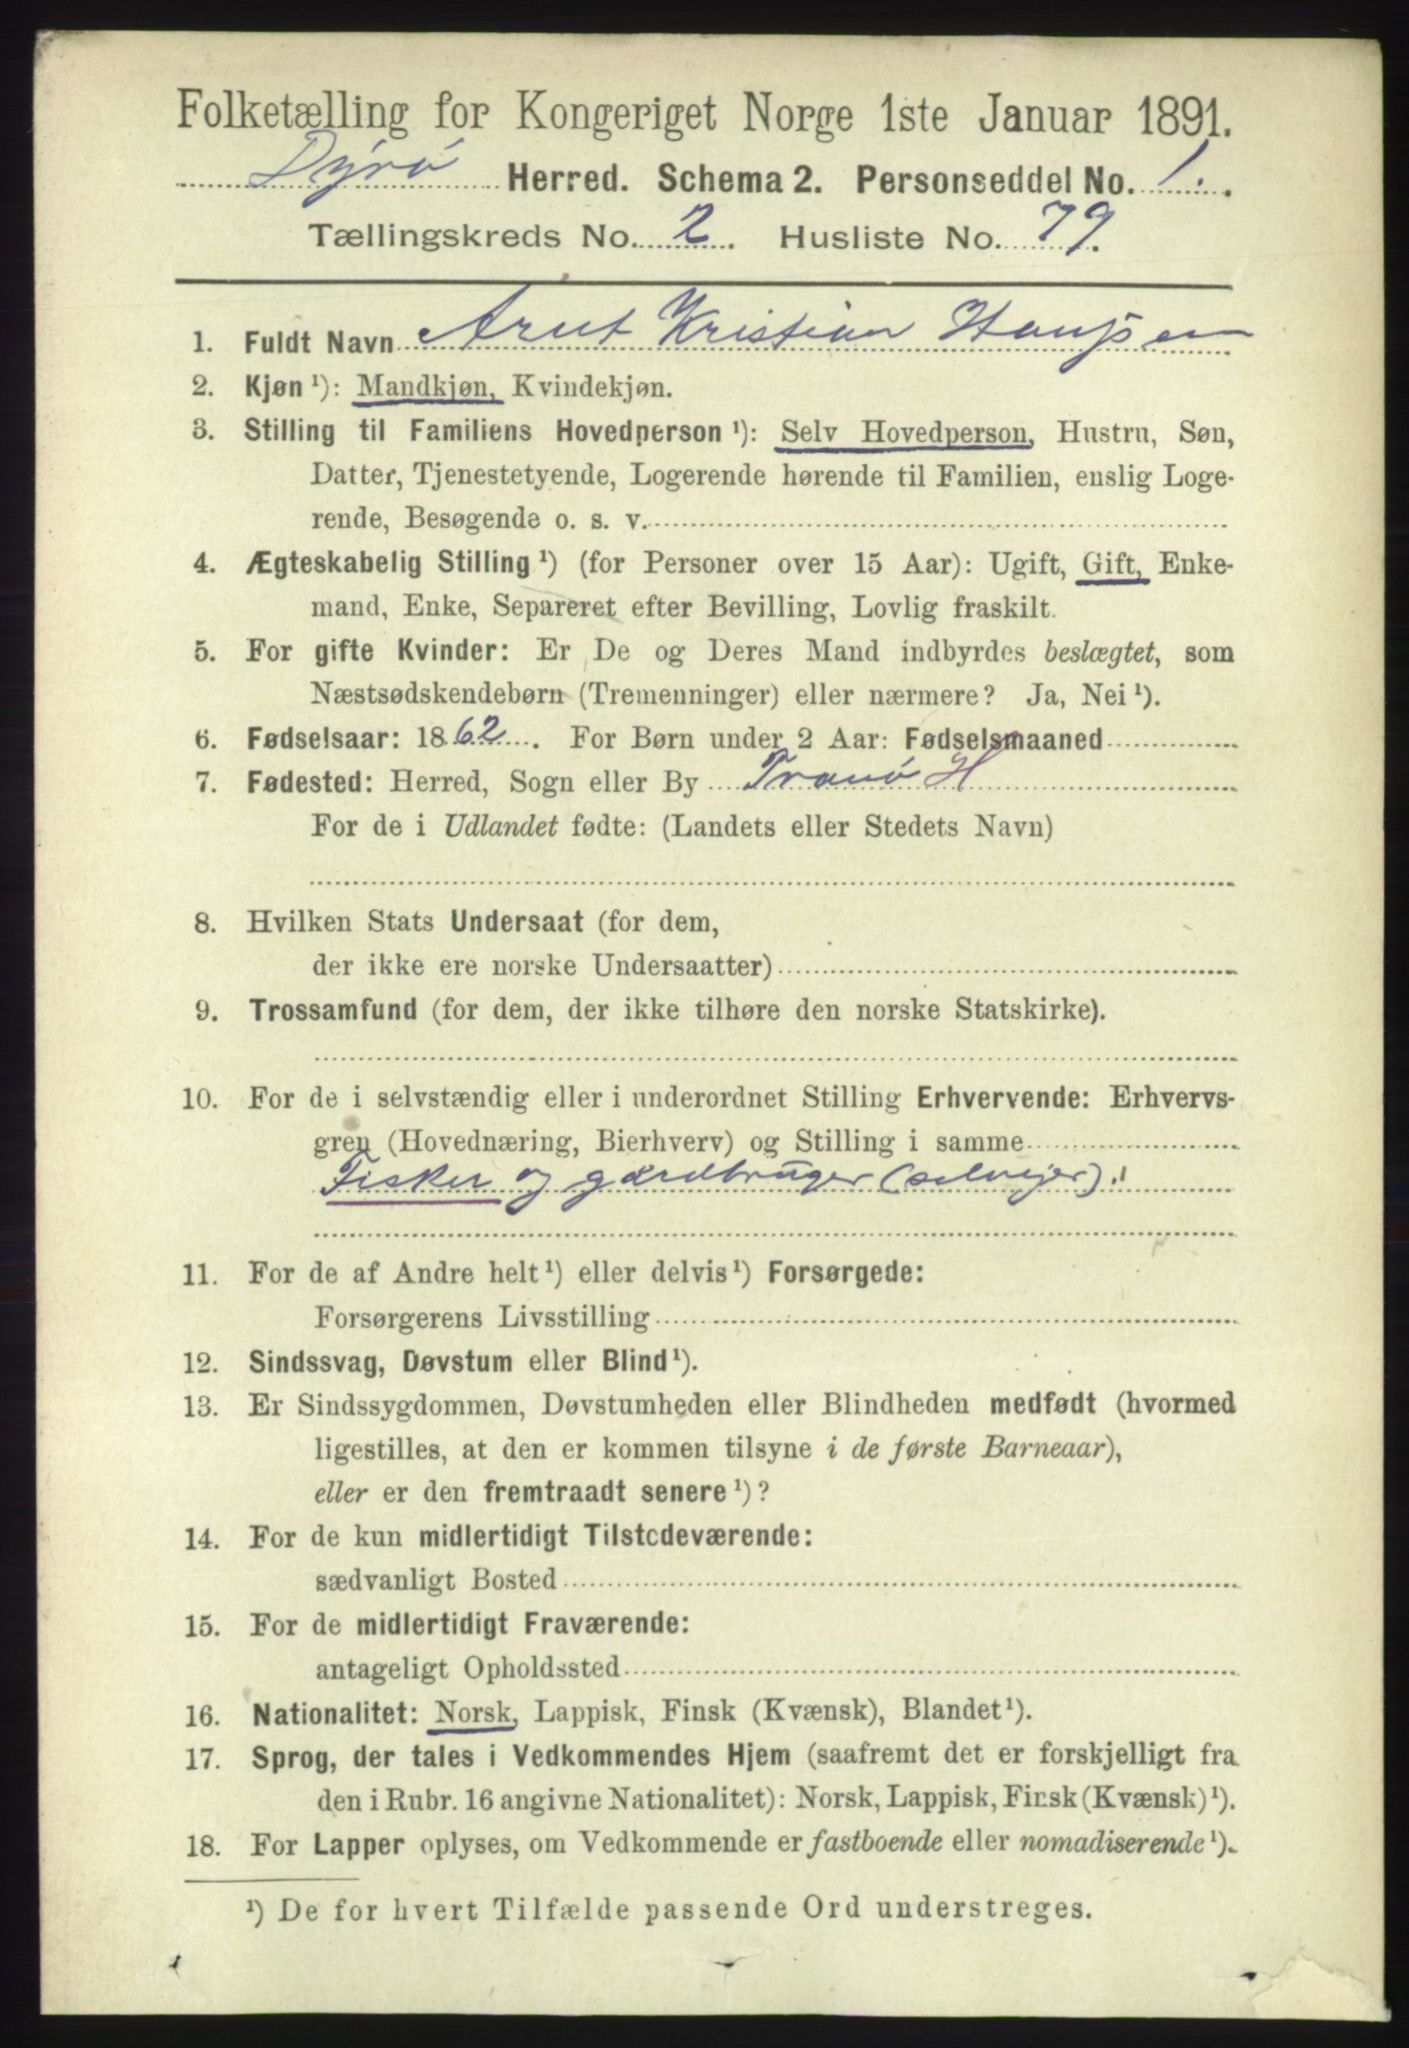 Folketælling for Kongeriget Norge 1ste Januar 1891.
Dyrø Herred. Schema 2. Personseddel No. 1.
Tællingskreds No. 2. Husliste No. 79.
1. Fuldt Navn Arnt Kristian Hansen
2. Kjøn ¹): Mandkjøn, Kvindekjøn.
3. Stilling til Familiens Hovedperson ¹): Selv Hovedperson, Hustru, Søn,
Datter, Tjenestetyende, Logerende hørende til Familien, enslig Loge-
rende, Besøgende o. s. v.
4. Ægteskabelig Stilling ¹) (for Personer over 15 Aar): Ugift, Gift, Enke-
mand, Enke, Separeret efter Bevilling, Lovlig fraskilt.
5. For gifte Kvinder: Er De og Deres Mand indbyrdes beslægtet, som
Næstsødskendebørn (Tremenninger) eller nærmere? Ja, Nei ¹).
6. Fødselsaar: 1862. For Børn under 2 Aar: Fødselsmaaned
7. Fødested: Herred, Sogn eller By Tranø H
For de i Udlandet fødte: (Landets eller Stedets Navn)
8. Hvilken Stats Undersaat (for dem,
der ikke ere norske Undersaatter)
9. Trossamfund (for dem, der ikke tilhøre den norske Statskirke).
10. For de i selvstændig eller i underordnet Stilling Erhvervende: Erhvervs-
gren (Hovednæring, Bierhverv) og Stilling i samme
Fisker og gårdbruger (selvejer).
11. For de af Andre helt ¹) eller delvis ¹) Forsørgede:
Forsørgerens Livsstilling
12. Sindssvag, Døvstum eller Blind ¹).
13. Er Sindssygdommen, Døvstumheden eller Blindheden medfødt (hvormed
ligestilles, at den er kommen tilsyne i de første Barneaar),
eller er den fremtraadt senere ¹)?
14. For de kun midlertidigt Tilstedeværende:
sædvanligt Bosted
15. For de midlertidigt Fraværende:
antageligt Opholdssted
16. Nationalitet: Norsk, Lappisk, Finsk (Kvænsk), Blandet ¹).
17. Sprog, der tales i Vedkommendes Hjem (saafremt det er forskjelligt fra
den i Rubr. 16 angivne Nationalitet): Norsk, Lappisk, Finsk (Kvænsk) ¹).
18. For Lapper oplyses, om Vedkommende er fastboende eller nomadiserende ¹).
¹) De for hvert Tilfælde passende Ord understreges.